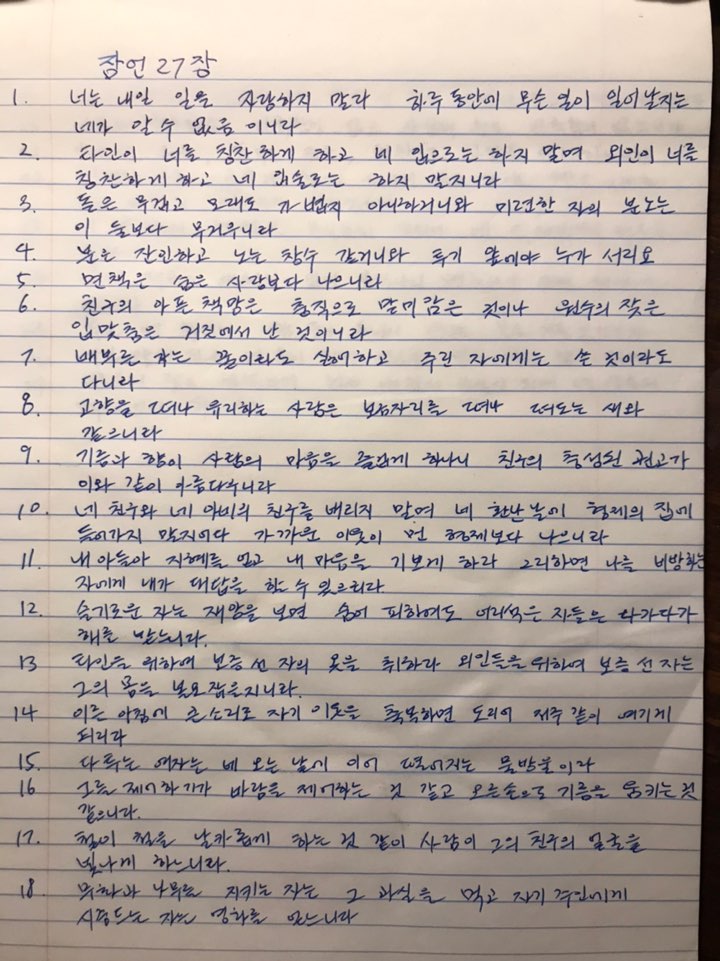 잠언 27장
1. 너는 내일 일을 자랑하지 말라 하루 동안에 무슨 일이 일어날지는
네가 알 수 없음이니라
2. 타인이 너를 칭찬하게 하고 네 입으로는 하지 말며 외인이 너를
칭찬하게 하고 네 입술로는 하지 말지니라
3. 돌은 무겁고 모래도 가볍지 아니하거니와 미련한 자의 분노는
이 둘보다 무거우니라
4. 분은 잔인하고 노는 창수 같거니와 투기 앞에야 누가 서리요
5. 면책은 숨은 사랑보다 나으니라
6. 친구의 아픈 책망은 충직으로 말미암은 것이나 원수의 잦은
입맞춤은 거짓에서 난 것이니라
7. 배부른 자는 꿀이라도 싫어하고 주린 자에게는 쓴 것이라도
다니라
8. 고향을 떠나 유리하는 사람은 보금자리를 떠나 떠도는 새와
같으니라
9. 기름과 향이 사람의 마음을 즐겁게 하나니 친구의 충성된 권고가
이와 같이 아름다우니라
10. 네 친구와 네 아비의 친구를 버리지 말며 네 환난 날에 형제의 집에
들어가지 말지어다 가까운 이웃이 먼 형제보다 나으니라
11. 내 아들아 지혜를 얻고 내 마음을 기쁘게 하라 그리하면 나를 비방하는
자에게 내가 대답할 수 있으리라
12. 슬기로운 자는 재앙을 보면 숨어 피하여도 어리석은 자들은 나가다가
해를 받느니라.
13 타인을 위하여 보증 선 자의 옷을 취하라 외인들을 위하여 보증 선 자는
그의 몸을 볼모 잡을지니라.
14 이른 아침에 큰소리로 자기 이웃을 축복하면 도리어 저주 같이 여기게
되리라
15. 다투는 여자는 비 오는 날에 이어 떨어지는 물방울이라
16 그를 제어하기가 바람을 제어하는 것 같고 오른손으로 기름을 움키는 것
같으니라.
17. 철이 철을 날카롭게 하는 것 같이 사람이 그의 친구의 얼굴을
빛나게 하느니라.
18 무화과 나무를 지키는 자는 그 과실을 먹고 자기 주인에게
시중드는 자는 영화를 얻느니라